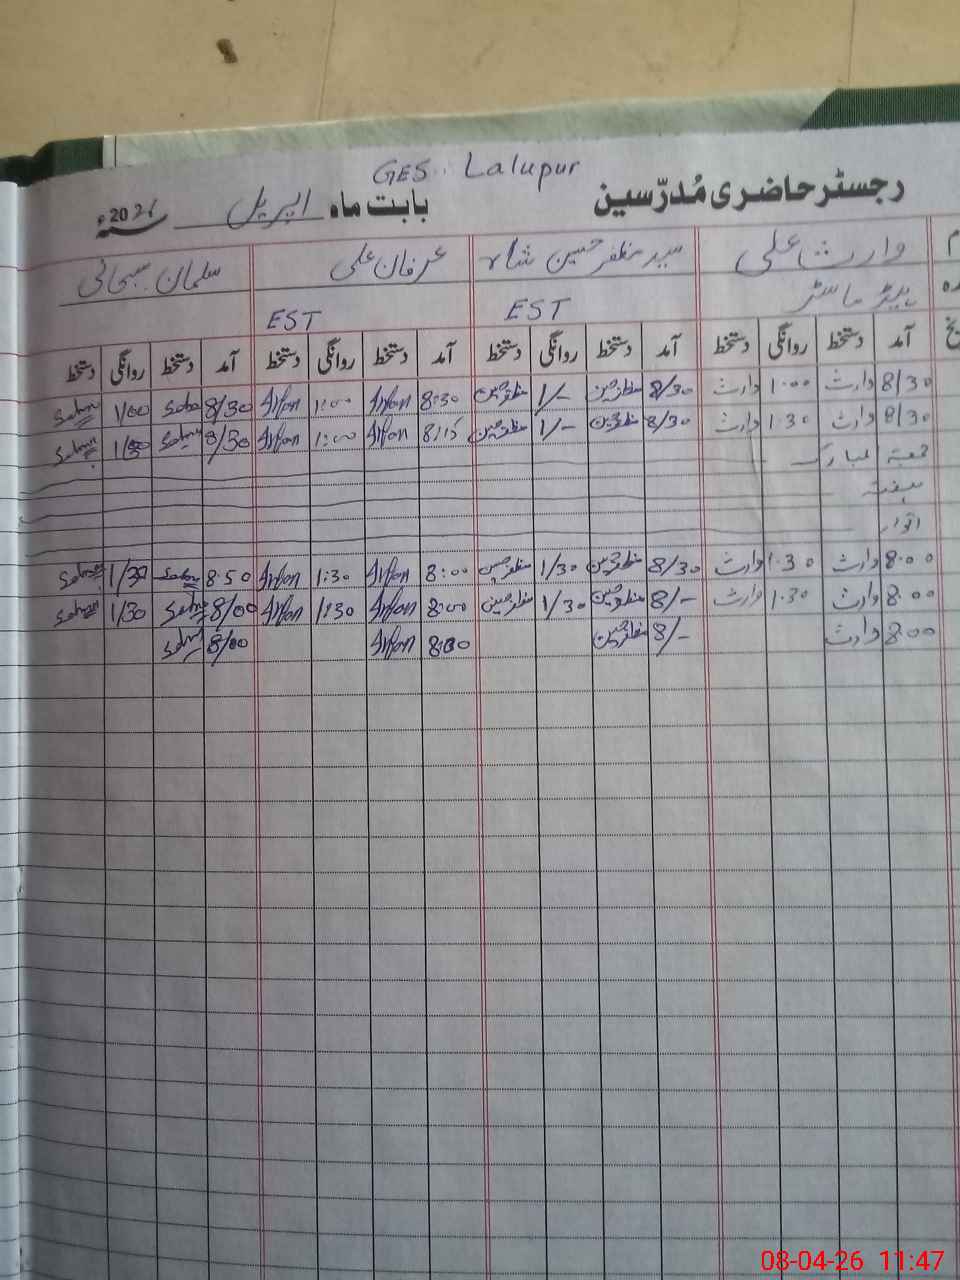 GES.. Lalupur
رجسٹر حاضری مُدرّسین بابت ماہ اپریل 2026ء
وارث علی سید مظفر حسین شاہ عرفان علی سلمان سبحانی
ہیڈ ماسٹر EST EST
آمد دستخط روانگی دستخط آمد دستخط روانگی دستخط آمد دستخط روانگی دستخط آمد دستخط روانگی دستخط
8/30 وارث 1:00 وارث 8/30 مظفر حسین 1/- مظفر حسین 8:30 Irfan 1:00 Irfan 8/30 1/00
8/30 وارث 1:30 وارث 8/30 مظفر حسین 1/- مظفر حسین 8:15 Irfan 1:00 Irfan 8/30
جمعتہ المبارک
ہفتہ
اتوار
8:00 وارث 1:30 وارث 8/30 مظفر حسین 1/30 مظفر حسین 8:00 Irfan 1:30 Irfan 8:50 1/30
8:00 وارث 1:30 وارث 8/- مظفر حسین 1/30 مظفر حسین 8:00 Irfan 1:30 Irfan 8/00 1/30
8:00 وارث 8/- مظفر حسین 8:00 Irfan 8/00
08-04-26 11:47